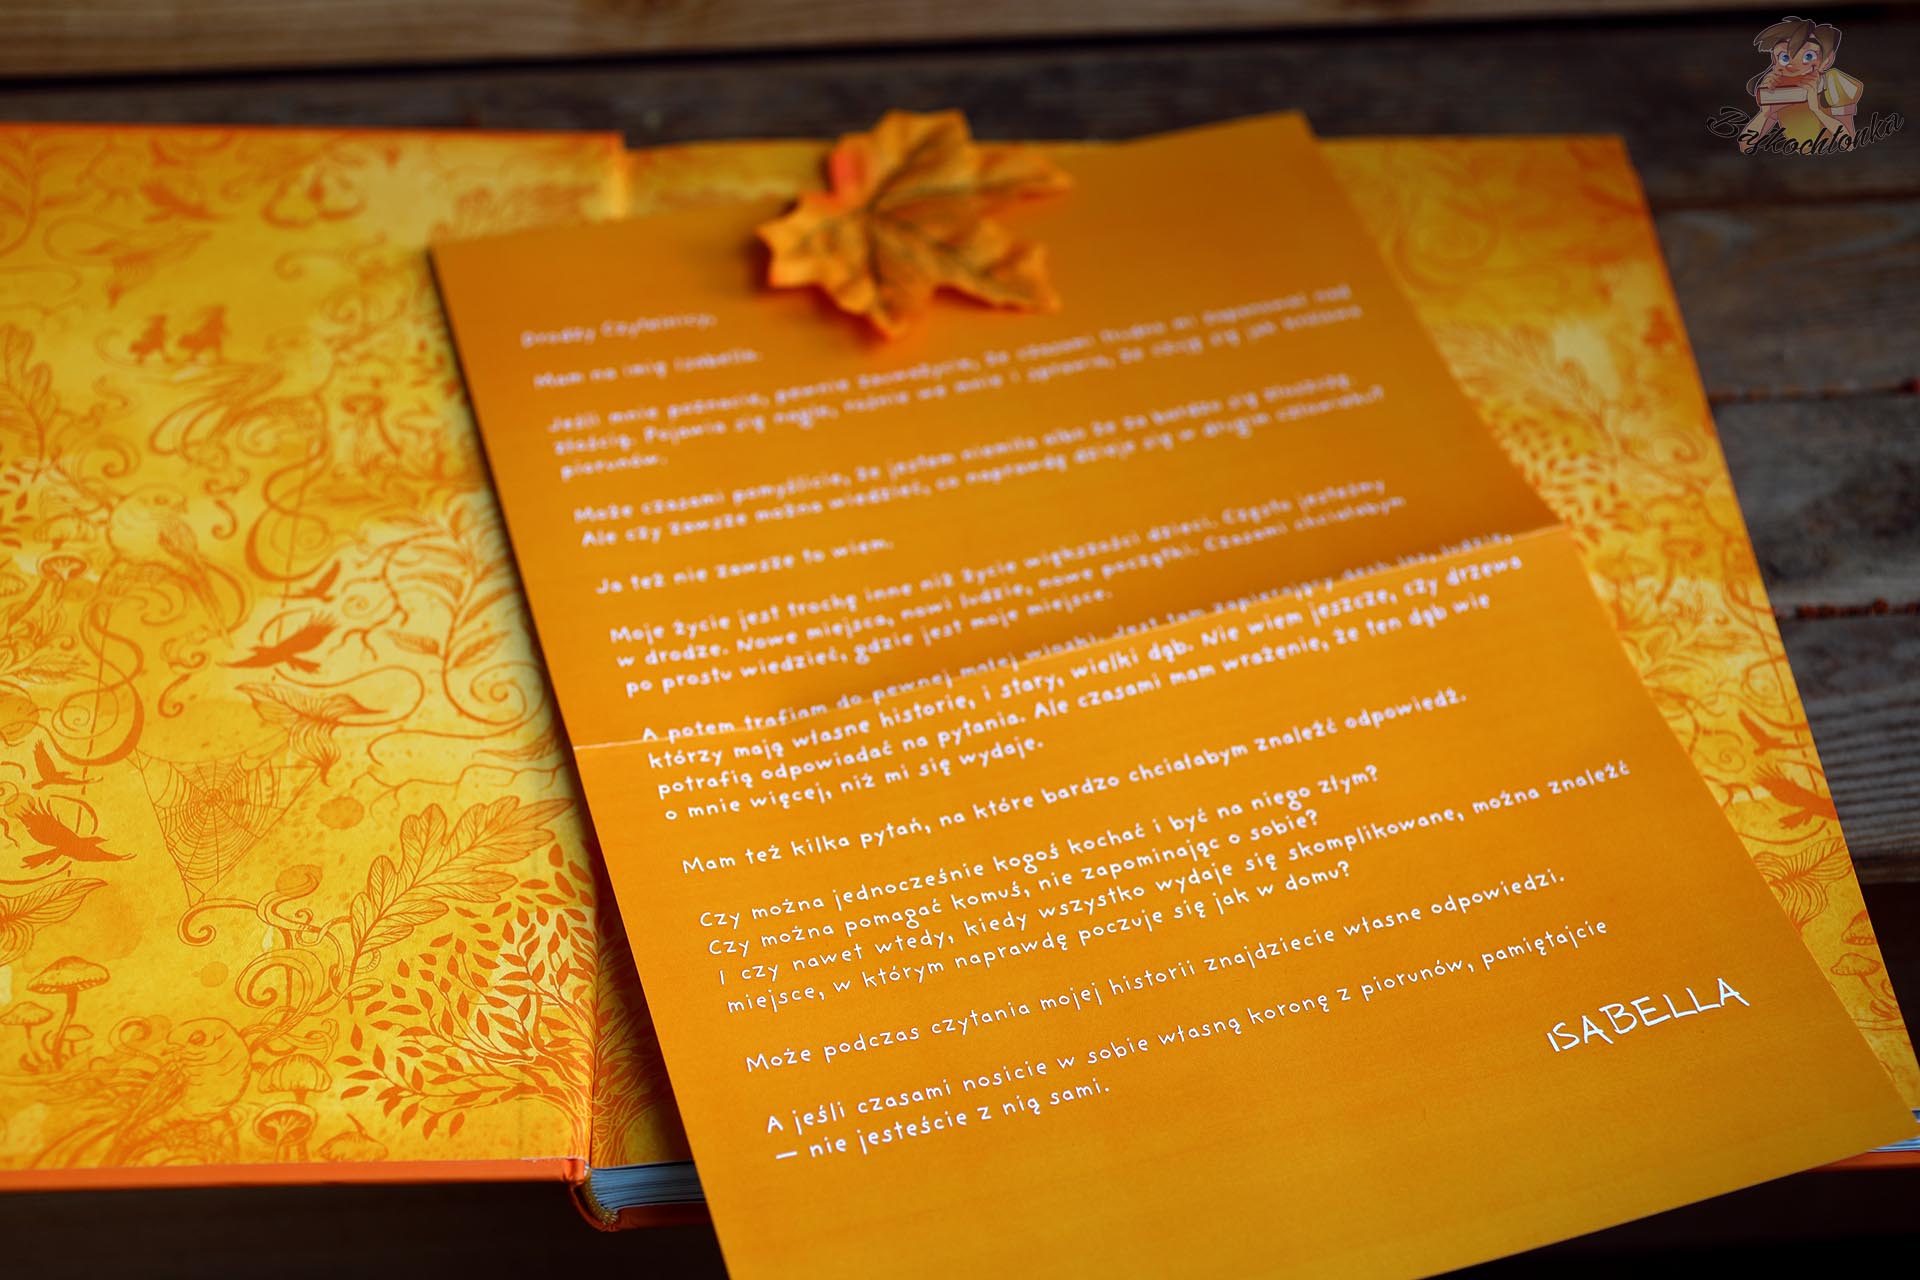 Bajkochłonka
Drodzy Czytelnicy,
Mam na imię Isabella.
Jeśli mnie poznacie, pewnie zauważycie, że czasami trudno mi zapanować nad
złością. Pojawia się nagle, rośnie we mnie i sprawia, że czuję się jak królowa
piorunów.
Może czasami pomyślicie, że jestem niemiła albo że za bardzo się złoszczę.
Ale czy zawsze można wiedzieć, co naprawdę dzieje się w drugim człowieku?
Ja też nie zawsze to wiem.
Moje życie jest trochę inne niż życie większości dzieci. Często jesteśmy
w drodze. Nowe miejsca, nowi ludzie, nowe początki. Czasami chciałabym
po prostu wiedzieć, gdzie jest moje miejsce.
A potem trafiam do pewnej małej wioski. Jest tam zapierający dech las, ludzie,
którzy mają własne historie, i stary, wielki dąb. Nie wiem jeszcze, czy drzewa
potrafią odpowiadać na pytania. Ale czasami mam wrażenie, że ten dąb wie
o mnie więcej, niż mi się wydaje.
Mam też kilka pytań, na które bardzo chciałabym znaleźć odpowiedź.
Czy można jednocześnie kogoś kochać i być na niego złym?
Czy można pomagać komuś, nie zapominając o sobie?
I czy nawet wtedy, kiedy wszystko wydaje się skomplikowane, można znaleźć
miejsce, w którym naprawdę poczuje się jak w domu?
Może podczas czytania mojej historii znajdziecie własne odpowiedzi.
A jeśli czasami nosicie w sobie własną koronę z piorunów, pamiętajcie
— nie jesteście z nią sami.
ISABELLA